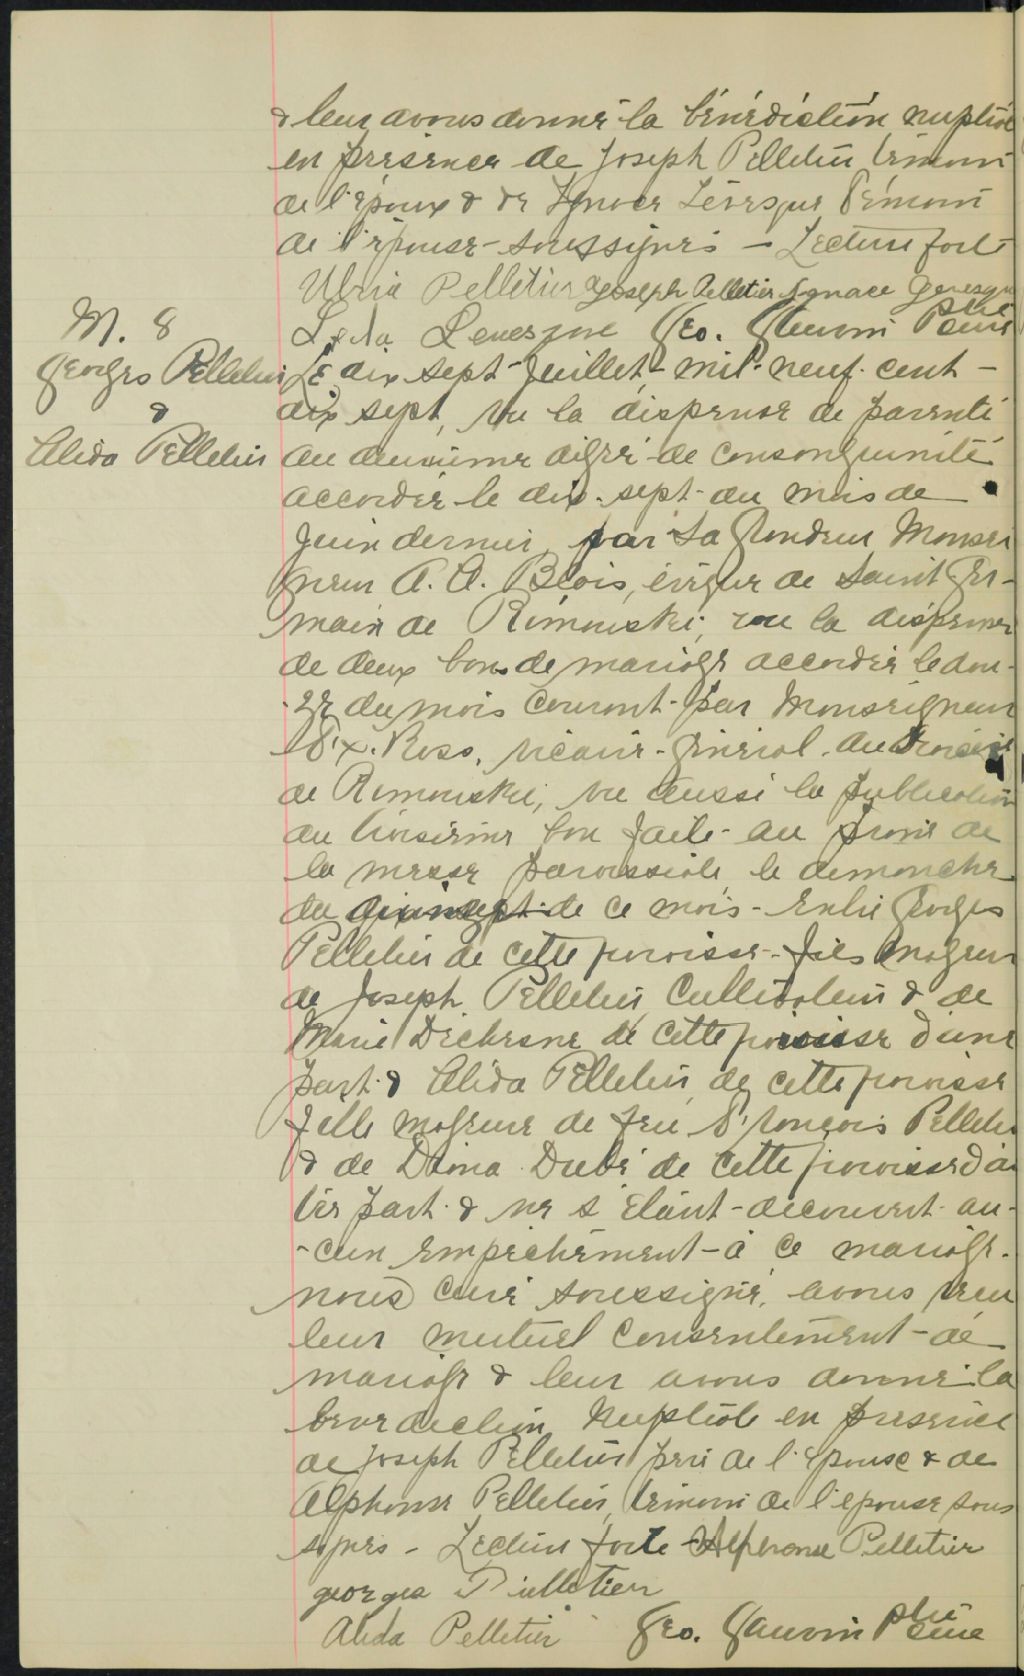 & leur avons donné la bénédiction nuptiale
en présence de Joseph Pelletier témoin
de l'époux & de Ignace Lévesque témoin
de l'épouse soussignés - Lecture faite
Ulric Pelletier Joseph Pelletier Ignace Levesque
Léda Levesque Geo. Gauvin Ptre
Curé
M. 8
Georges Pelletier
&
Alida Pelletier
Le dix sept Juillet mil neuf cent -
dix sept, vu la dispense de parenté
au deuxième degré de consanguinité
accordée le dix-sept du mois de
Juin dernier par Sa Grandeur Monsei
gneur A. A. Blois, évêque de Saint Ger-
main de Rimouski, vu la dispense
de deux bans de mariage accordée le dou-
-ze du mois courant par Monseigneur
F. X. Ross, vicaire-général du diocèse
de Rimouski, vu aussi la publication
du troisième ban faite au prône de
la messe paroissiale le dimanche
du quinze de ce mois - Entre Georges
Pelletier de cette paroisse fils majeur
de Joseph Pelletier Cultivateur & de
Marie Dechesne de cette paroisse d'une
part & Alida Pelletier de cette paroisse
fille majeure de feu François Pelletier
& de Dina Dubé de cette paroisse d'au
tre part & ne s'étant découvert au-
-cun empêchement à ce mariage
nous curé soussigné, avons reçu
leur mutuel consentement de
mariage & leur avons donné la
bénédiction nuptiale en présence
de Joseph Pelletier père de l'épouse & de
Alphonse Pelletier, témoin de l'épouse sous
signés - Lecture faite Alphonse Pelletier
georges Pielletier
Alida Pelletier Geo. Gauvin Ptre
Curé